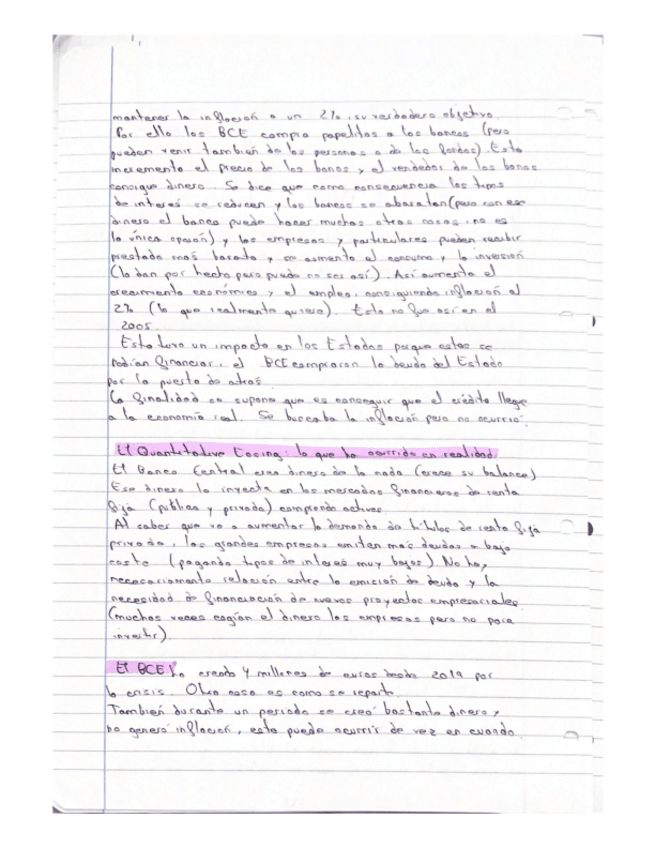 mantener la inflación a un 2%, su verdadero objetivo.
Por ello los BCE compra papelitos a los bancos (pero
pueden venir también de las personas o de los fondos). Esto
incrementa el precio de los bonos y el vendedor de los bonos
consigue dinero. Se dice que como consecuencia los tipos
de interés se reducen y los bancos se abaratan (pero con ese
dinero el banco puede hacer muchas otras cosas, no es
la única opción) y las empresas y particulares pueden recibir
prestado más barato y se aumenta el consumo y la inversión
(lo dan por hecho pero puede no ser así). Así aumenta el
crecimiento económico y el empleo, consiguiendo inflación al
2% (lo que realmente quiere). Esto no fue así en el
2005.
Esto tuvo un impacto en los Estados porque estos se
podían financiar, el BCE compraron la deuda del Estado
por la puerta de atrás.
La finalidad se supone que es conseguir que el crédito llegue
a la economía real. Se buscaba la inflación pero no ocurrió.
El Quantitative Easing: lo que ha ocurrido en realidad
El Banco Central crea dinero de la nada (crece su balance)
Ese dinero lo inyecta en los mercados financieros de renta
fija (pública y privada) comprando activos
Al saber que va a aumentar la demanda de títulos de renta fija
privada, las grandes empresas emiten más deudas a bajo
coste (pagando tipos de interés muy bajos). No hay
necesariamente relación entre la emisión de deuda y la
necesidad de financiación de nuevos proyectos empresariales
(muchas veces cogían el dinero las empresas pero no para
invertir).
El BCE ha creado 4 millones de euros desde 2019 por
la crisis. Otra cosa es como se reparte.
También durante un periodo se creó bastante dinero y
no generó inflación, esto puede ocurrir de vez en cuando.